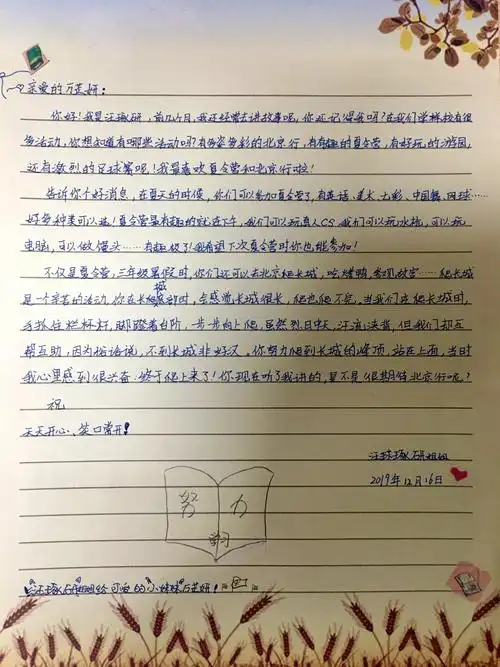 亲爱的万芷妍:
你好!我是汪琢研,前几个月,我还经常去讲故事呢,你还记得我吗?在我们学校有很
多活动,你想知道有哪些活动吗?有多姿多彩的北京行,有有趣的夏令营,有好玩的游园,
还有激烈的足球赛呢!我最喜欢夏令营和北京行啦!
告诉你个好消息,在夏天的时候,你们可以参加夏令营了,有英语、美术、七彩、中国舞、网球……
好多种类可以选!夏令营最有趣的就在下午,我们可以玩真人CS,我们可以玩水枪,可以玩
电脑,可以做馒头……有趣极了!我希望下次夏令营时你也能参加!
不仅是夏令营,三年级暑假时,你们还可以去北京爬长城,吃烤鸭,参观故宫……爬长城
是一个辛苦的活动,你在长城底部时,会感觉长城很长,爬也爬不完。当我们在爬长城时,
手抓住栏杆,脚踏着台阶,一步一步向上爬,虽然烈日中天,汗流浃背,但我们却互
帮互助,因为俗话说,不到长城非好汉。你努力爬到长城的峰顶,站在上面,当时
我心里感到很兴奋:终于爬上来了!你现在听了我讲的,是不是很期待北京行呢?
祝
天天开心、笑口常开!
汪琢研姐姐
2019年12月16日
努力
学习
"汪琢研"姐姐给可爱的"小妹妹"万芷妍!